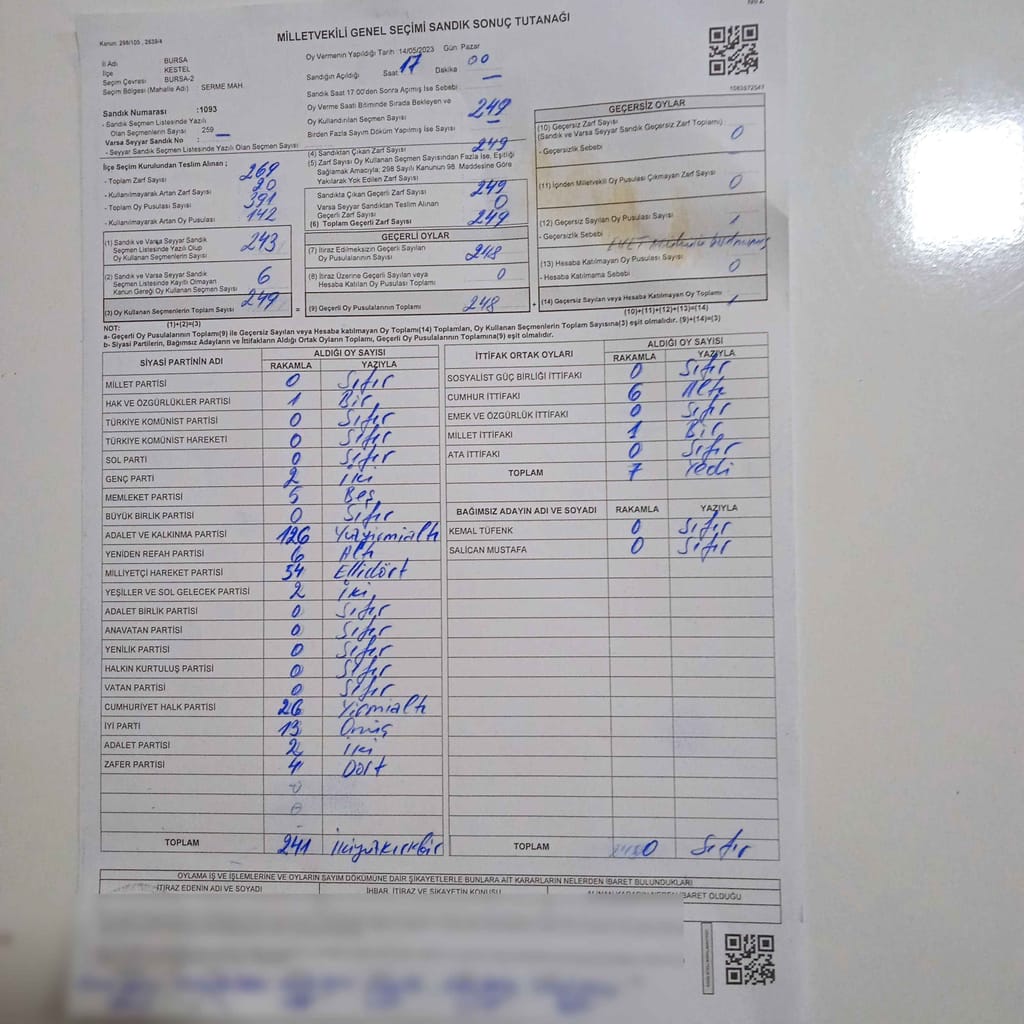 Kanun: 298/105, 2839/4
MİLLETVEKİLİ GENEL SEÇİMİ SANDIK SONUÇ TUTANAĞI
İl Adı BURSA
İlçe KESTEL
Seçim Çevresi BURSA-2
Seçim Bölgesi (Mahalle Adı) SERME MAH.
Oy Vermenin Yapıldığı Tarih :14/05/2023 Gün: Pazar
Sandığın Açıldığı Saat 17 Dakika 00
Sandık Saat 17:00'den Sonra Açımış İse Sebebi —
Oy Verme Saati Bitiminde Sırada Bekleyen ve
Oy Kullandırılan Seçmen Sayısı 249
Birden Fazla Sayım Döküm Yapılmış İse Sayısı —
Sandık Numarası :1093
- Sandık Seçmen Listesinde Yazılı
Olan Seçmenlerin Sayısı 259
Varsa Seyyar Sandık No : —
- Seyyar Sandık Seçmen Listesinde Yazılı Olan Seçmen Sayısı
İlçe Seçim Kurulundan Teslim Alınan ;
- Toplam Zarf Sayısı 269
- Kullanılmayarak Artan Zarf Sayısı 20
- Toplam Oy Pusulası Sayısı 391
- Kullanılmayarak Artan Oy Pusulası 142
(1) Sandık ve Varsa Seyyar Sandık
Seçmen Listesinde Yazılı Olup
Oy Kullanan Seçmenlerin Sayısı 243
(2) Sandık ve Varsa Seyyar Sandık
Seçmen Listesinde Kayıtlı Olmayan
Kanun Gereği Oy Kullanan Seçmen Sayısı 6
(3) Oy Kullanan Seçmenlerin Toplam Sayısı 249
(1)+(2)=(3)
(4) Sandıktan Çıkan Zarf Sayısı 249
(5) Zarf Sayısı Oy Kullanan Seçmen Sayısından Fazla İse, Eşitliği
Sağlamak Amacıyla; 298 Sayılı Kanunun 98. Maddesine Göre
Yakılarak Yok Edilen Zarf Sayısı
Sandıkta Çıkan Geçerli Zarf Sayısı 249
Varsa Seyyar Sandıktan Teslim Alınan
Geçerli Zarf Sayısı 0
(6) Toplam Geçerli Zarf Sayısı 249
GEÇERLİ OYLAR
(7) İtiraz Edilmeksizin Geçerli Sayılan
Oy Pusulalarının Sayısı 248
(8) İtiraz Üzerine Geçerli Sayılan veya
Hesaba Katılan Oy Pusulası Toplamı 0
= (9) Geçerli Oy Pusulalarının Toplamı 248
1083572547
GEÇERSİZ OYLAR
(10) Geçersiz Zarf Sayısı
(Sandık ve Varsa Seyyar Sandık Geçersiz Zarf Toplamı) 0
- Geçersizlik Sebebi
(11) İçinden Milletvekili Oy Pusulası Çıkmayan Zarf Sayısı 0
(12) Geçersiz Sayılan Oy Pusulası Sayısı 1
- Geçersizlik Sebebi EVET
(13) Hesaba Katılmayan Oy Pusulası Sayısı 0
- Hesaba Katılmama Sebebi
+ (14) Geçersiz Sayılan veya Hesaba Katılmayan Oy Toplamı 1
(10)+(11)+(12)+(13)=(14)
NOT:
a- Geçerli Oy Pusulalarının Toplamı(9) ile Geçersiz Sayılan veya Hesaba katılmayan Oy Toplamı(14) Toplamları, Oy Kullanan Seçmenlerin Toplam Sayısına(3) eşit olmalıdır. (9)+(14)=(3)
b- Siyasi Partilerin, Bağımsız Adayların ve İttifakların Aldığı Ortak Oyların Toplamı, Geçerli Oy Pusulalarının Toplamına(9) eşit olmalıdır.
SİYASİ PARTİNİN ADI ALDIĞI OY SAYISI
RAKAMLA YAZIYLA
MİLLET PARTİSİ 0 Sıfır
HAK VE ÖZGÜRLÜKLER PARTİSİ 1 Bir
TÜRKİYE KOMÜNİST PARTİSİ 0 Sıfır
TÜRKİYE KOMÜNİST HAREKETİ 0 Sıfır
SOL PARTİ 0 Sıfır
GENÇ PARTİ 2 İki
MEMLEKET PARTİSİ 5 Beş
BÜYÜK BİRLİK PARTİSİ 0 Sıfır
ADALET VE KALKINMA PARTİSİ 126 Yüzyirmialtı
YENİDEN REFAH PARTİSİ 6 Altı
MİLLİYETÇİ HAREKET PARTİSİ 54 Ellidört
YEŞİLLER VE SOL GELECEK PARTİSİ 2 İki
ADALET BİRLİK PARTİSİ 0 Sıfır
ANAVATAN PARTİSİ 0 Sıfır
YENİLİK PARTİSİ 0 Sıfır
HALKIN KURTULUŞ PARTİSİ 0 Sıfır
VATAN PARTİSİ 0 Sıfır
CUMHURİYET HALK PARTİSİ 26 Yirmialtı
İYİ PARTİ 13 Onüç
ADALET PARTİSİ 2 İki
ZAFER PARTİSİ 4 Dört
0
0
TOPLAM 241 İkiyüzkırkbir
İTTİFAK ORTAK OYLARI ALDIĞI OY SAYISI
RAKAMLA YAZIYLA
SOSYALİST GÜÇ BİRLİĞİ İTTİFAKI 0 Sıfır
CUMHUR İTTİFAKI 6 Altı
EMEK VE ÖZGÜRLÜK İTTİFAKI 0 Sıfır
MİLLET İTTİFAKI 1 Bir
ATA İTTİFAKI 0 Sıfır
TOPLAM 7 Yedi
BAĞIMSIZ ADAYIN ADI VE SOYADI RAKAMLA YAZIYLA
KEMAL TÜFENK 0 Sıfır
SALİCAN MUSTAFA 0 Sıfır
TOPLAM 0 Sıfır
OYLAMA İŞ VE İŞLEMLERİNE VE OYLARIN SAYIM DÖKÜMÜNE DAİR ŞİKAYETLERLE BUNLARA AİT KARARLARIN NELERDEN İBARET BULUNDUKLARI
İTİRAZ EDENİN ADI VE SOYADI İHBAR, İTİRAZ VE ŞİKAYETİN KONUSU ALINAN KARARIN NEDEN İBARET OLDUĞU